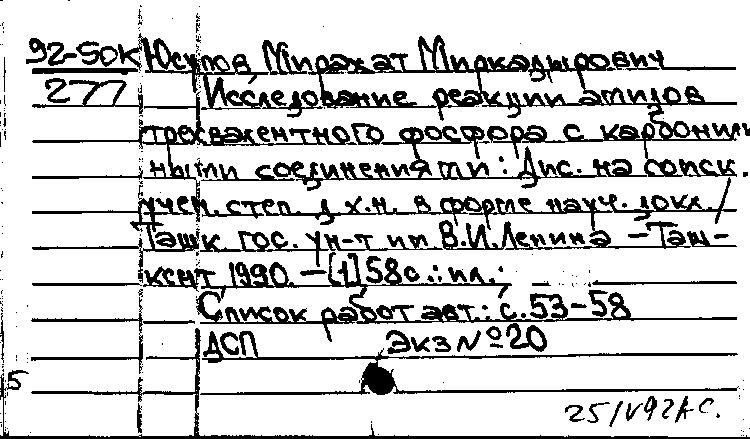 92-50К Юсупов Мирахат Миркадырович
277 Исследование реакции амидов
трехвалентного фосфора с карбониль
ными соединениями: Дис. на соиск.
учен. степ. д.х.н. в форме науч. докл. /
Ташк. гос. ун-т им В.И.Ленина – Таш-
кент, 1990. – [1] 58с.: ил.;
Список работ авт.: с.53-58
ДСП Экз №20
5
25/V92г.